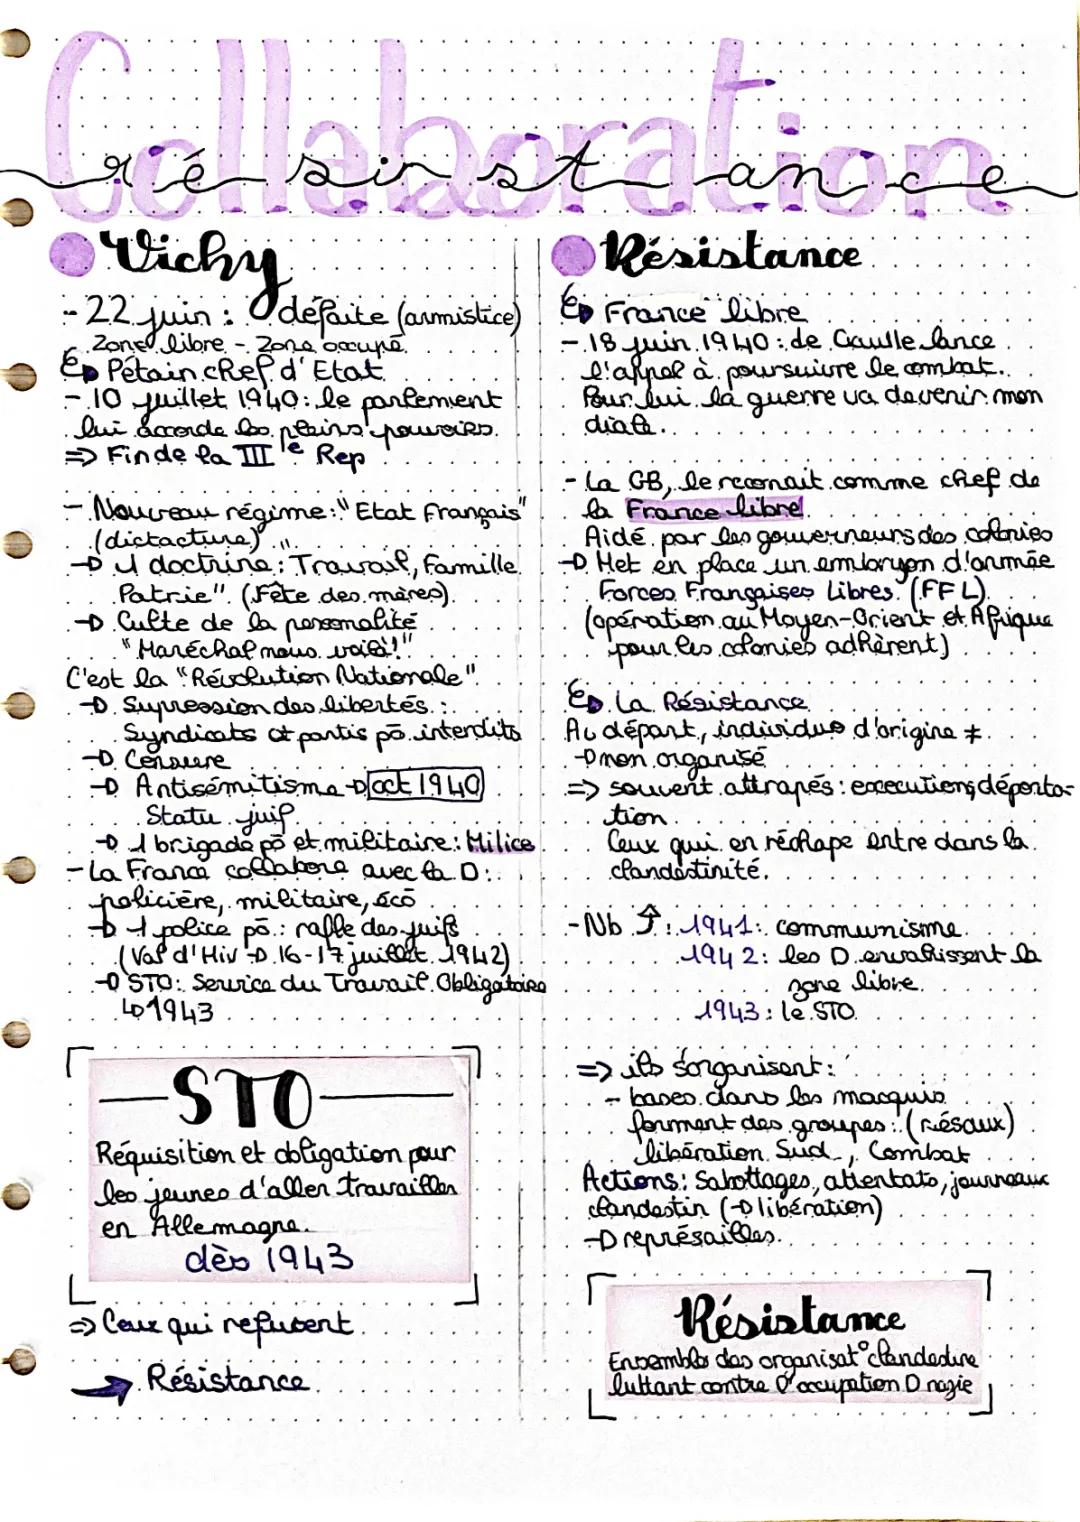 Collaboration
résistance
Vichy
- 22 juin : défaite (armistice)
Zone libre - Zone occupé.
Pétain chef d'Etat
- 10 juillet 1940: le parlement
lui accorde les pleins pouvoirs.
=> Fin de la IIIe Rep
- Nouveau régime: "Etat Français"
(dictacture)
→ 1 doctrine: "Travail, Famille
Patrie". (Fête des mères)
→ Culte de la personnalité
"Maréchal nous voilà!"
C'est la "Révolution Nationale"
→ Supression des libertés:
Syndicats et partis pō interdits
→ Censure
→ Antisémitisme → oct 1940
Statu juif
→ 1 brigade pō et militaire: Milice
- La France collabore avec la D:
policière, militaire, éco
→ 1 police pō: rafle des juifs
(Val d'Hiv → 16-17 juillet 1942)
→ STO: Service du Travail Obligatoire
↳ 1943
STO
Réquisition et obligation pour
les jeunes d'aller travailler
en Allemagne.
dès 1943
=> Ceux qui refusent
→ Résistance
Résistance
France libre
- 18 juin 1940: de Gaulle lance
l'appel à poursuivre le combat.
Pour lui la guerre va devenir mon
diale.
- La GB, le reconait comme chef de
la France libre.
Aidé par les gouverneurs des colonies
→ Met en place un embryon d'armée
Forces Françaises Libres (FFL)
(opération au Moyen-Orient et Afrique
pour les colonies adhèrent)
La Résistance
Au départ, individus d'origine ≠
→ non organisé
=> souvent attrapés: executions, déporta-
tion
Ceux qui en réchape entre dans la
clandestinité.
- Nb ↑: 1941: communisme
1942: les D envahissent la
zone libre.
1943: le STO
=> ils s'organisent:
- bases dans les macquis
forment des groupes: (résaux)
libération Sud, Combat
Actions: Sabottages, attentats, journeaux
clandestin (→ libération)
→ représailles.
Résistance
Ensembles des organisat° clandestine
luttant contre l'occupation D nazie